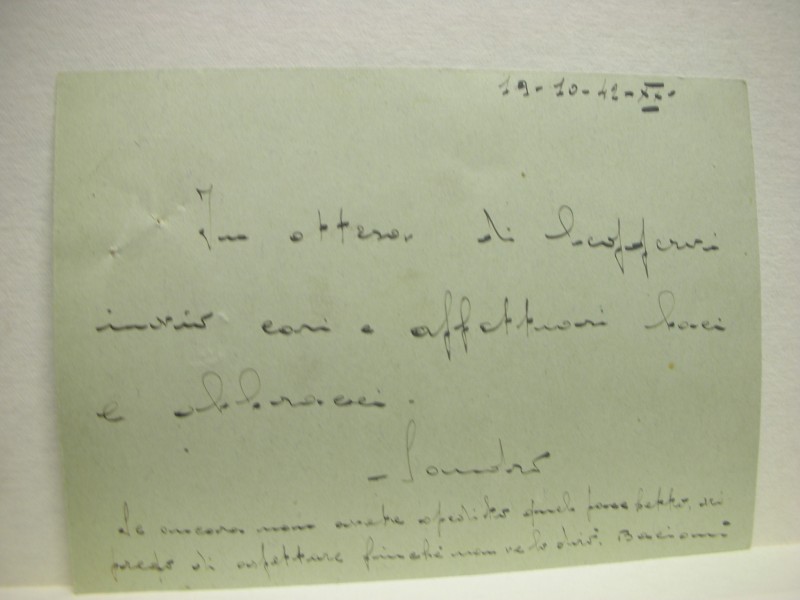 19-10-42-XX-
In attesa di leggervi
invio cari e affettuosi baci
e abbracci.
- Sandro
Se ancora non avete spedito quel pacchetto, vi
prego di aspettare finché non ve lo dirò. Bacioni